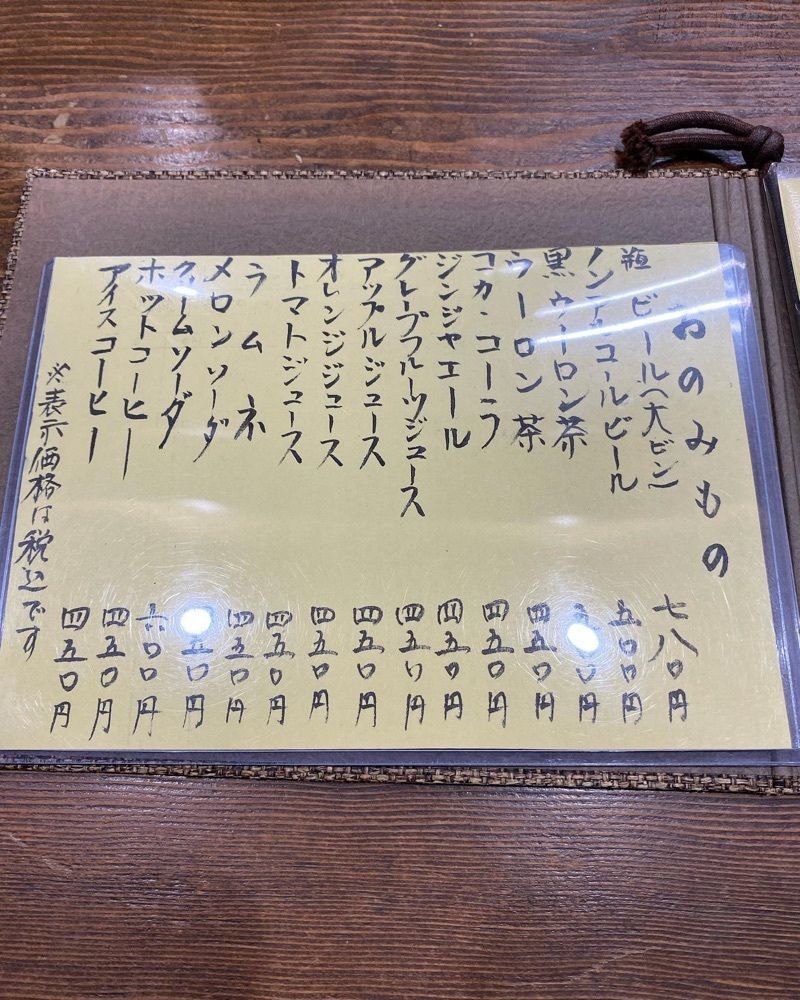 おのみもの
瓶ビール(大ビン) 七八〇円
ノンアルコールビール 五〇〇円
黒ウーロン茶 〇〇円
ウーロン茶 四五〇円
コカ・コーラ 四五〇円
ジンジャエール 四五〇円
グレープフルーツジュース 四五〇円
アップルジュース 四五〇円
オレンジジュース 四五〇円
トマトジュース 四五〇円
ラムネ 四五〇円
メロンソーダ 五〇円
クリームソーダ 六〇〇円
ホットコーヒー 四五〇円
アイスコーヒー 四五〇円
※表示価格は税込です